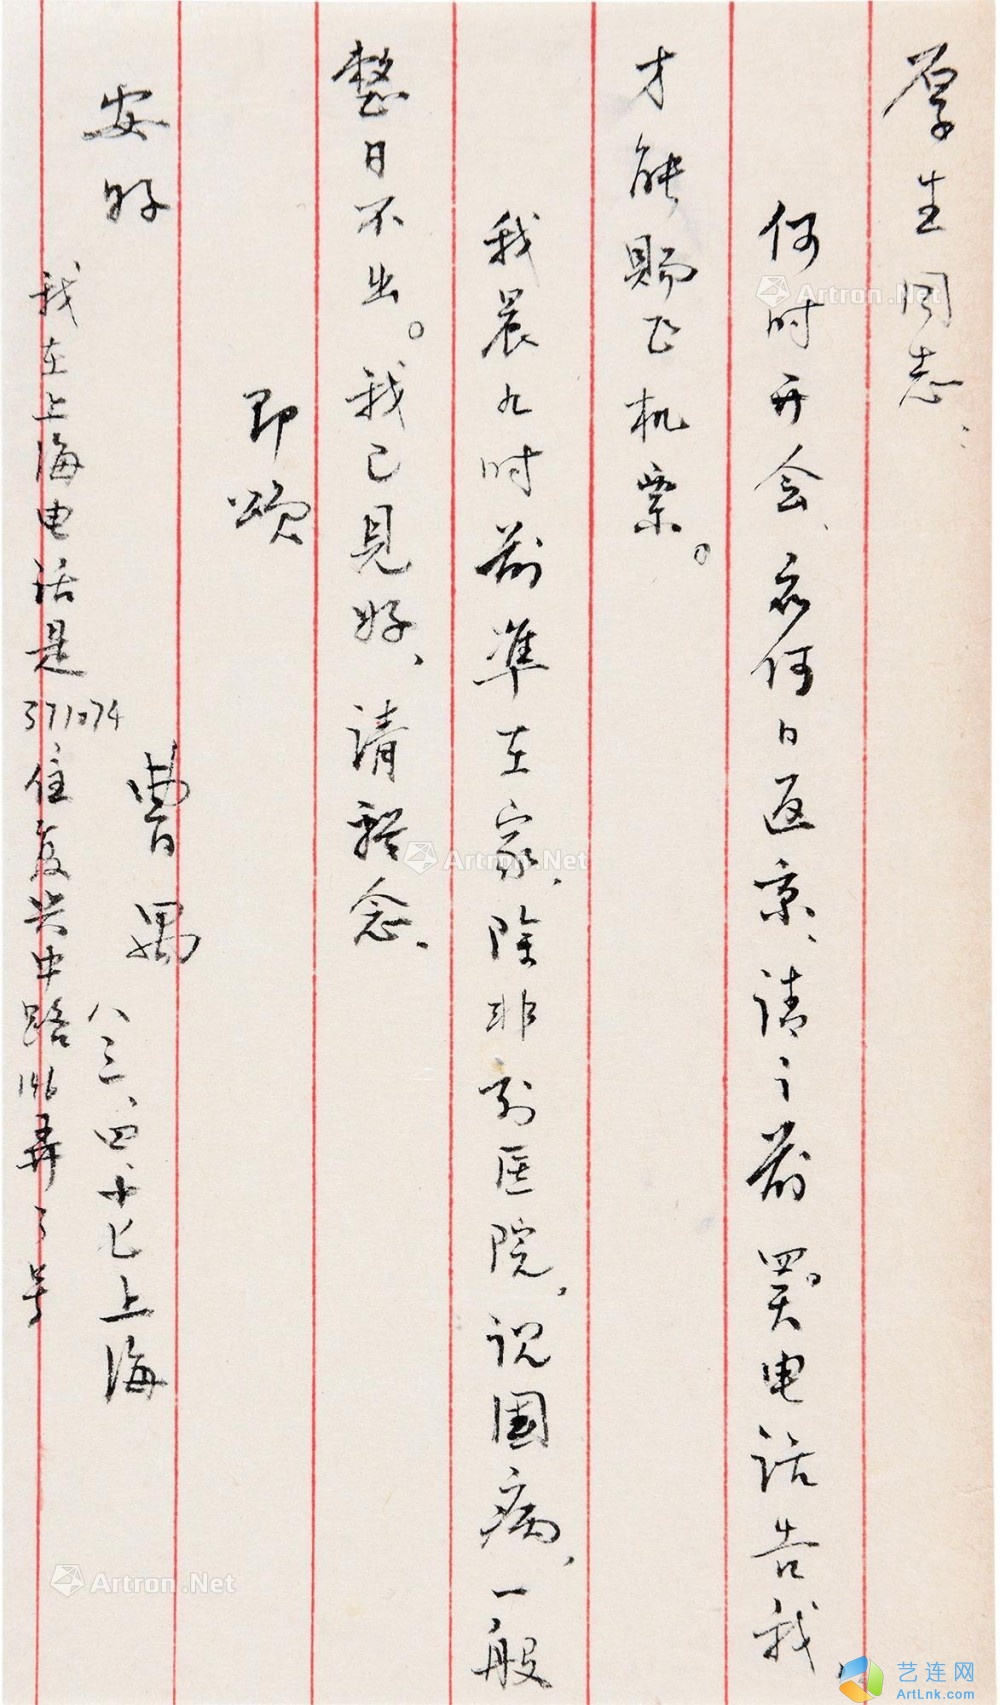 厚生同志：
何时开会、何日返京、请前电话告我，
才能购飞机票。
我晨九时前準在家、除非到医院，病，一般
整日不出。我已見好、请释念、
即颂
安好
曹禺
八三、四、十七上海
我在上海电话是371074住复兴中路146弄3号
Artron.Net
Artron.Net
Artron.Net
艺连网
ArtLnk.com